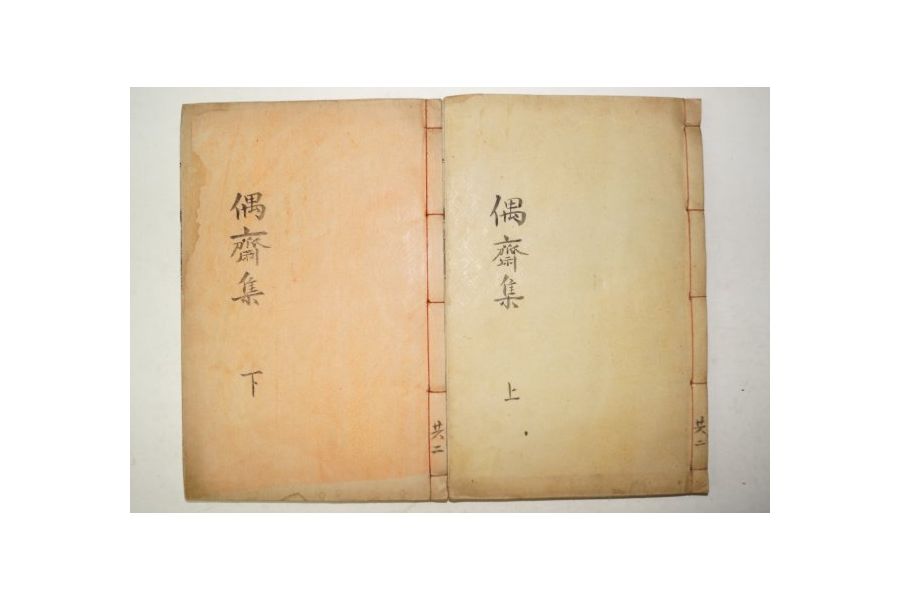 偶齋集
上
共二
偶齋集
下
共二